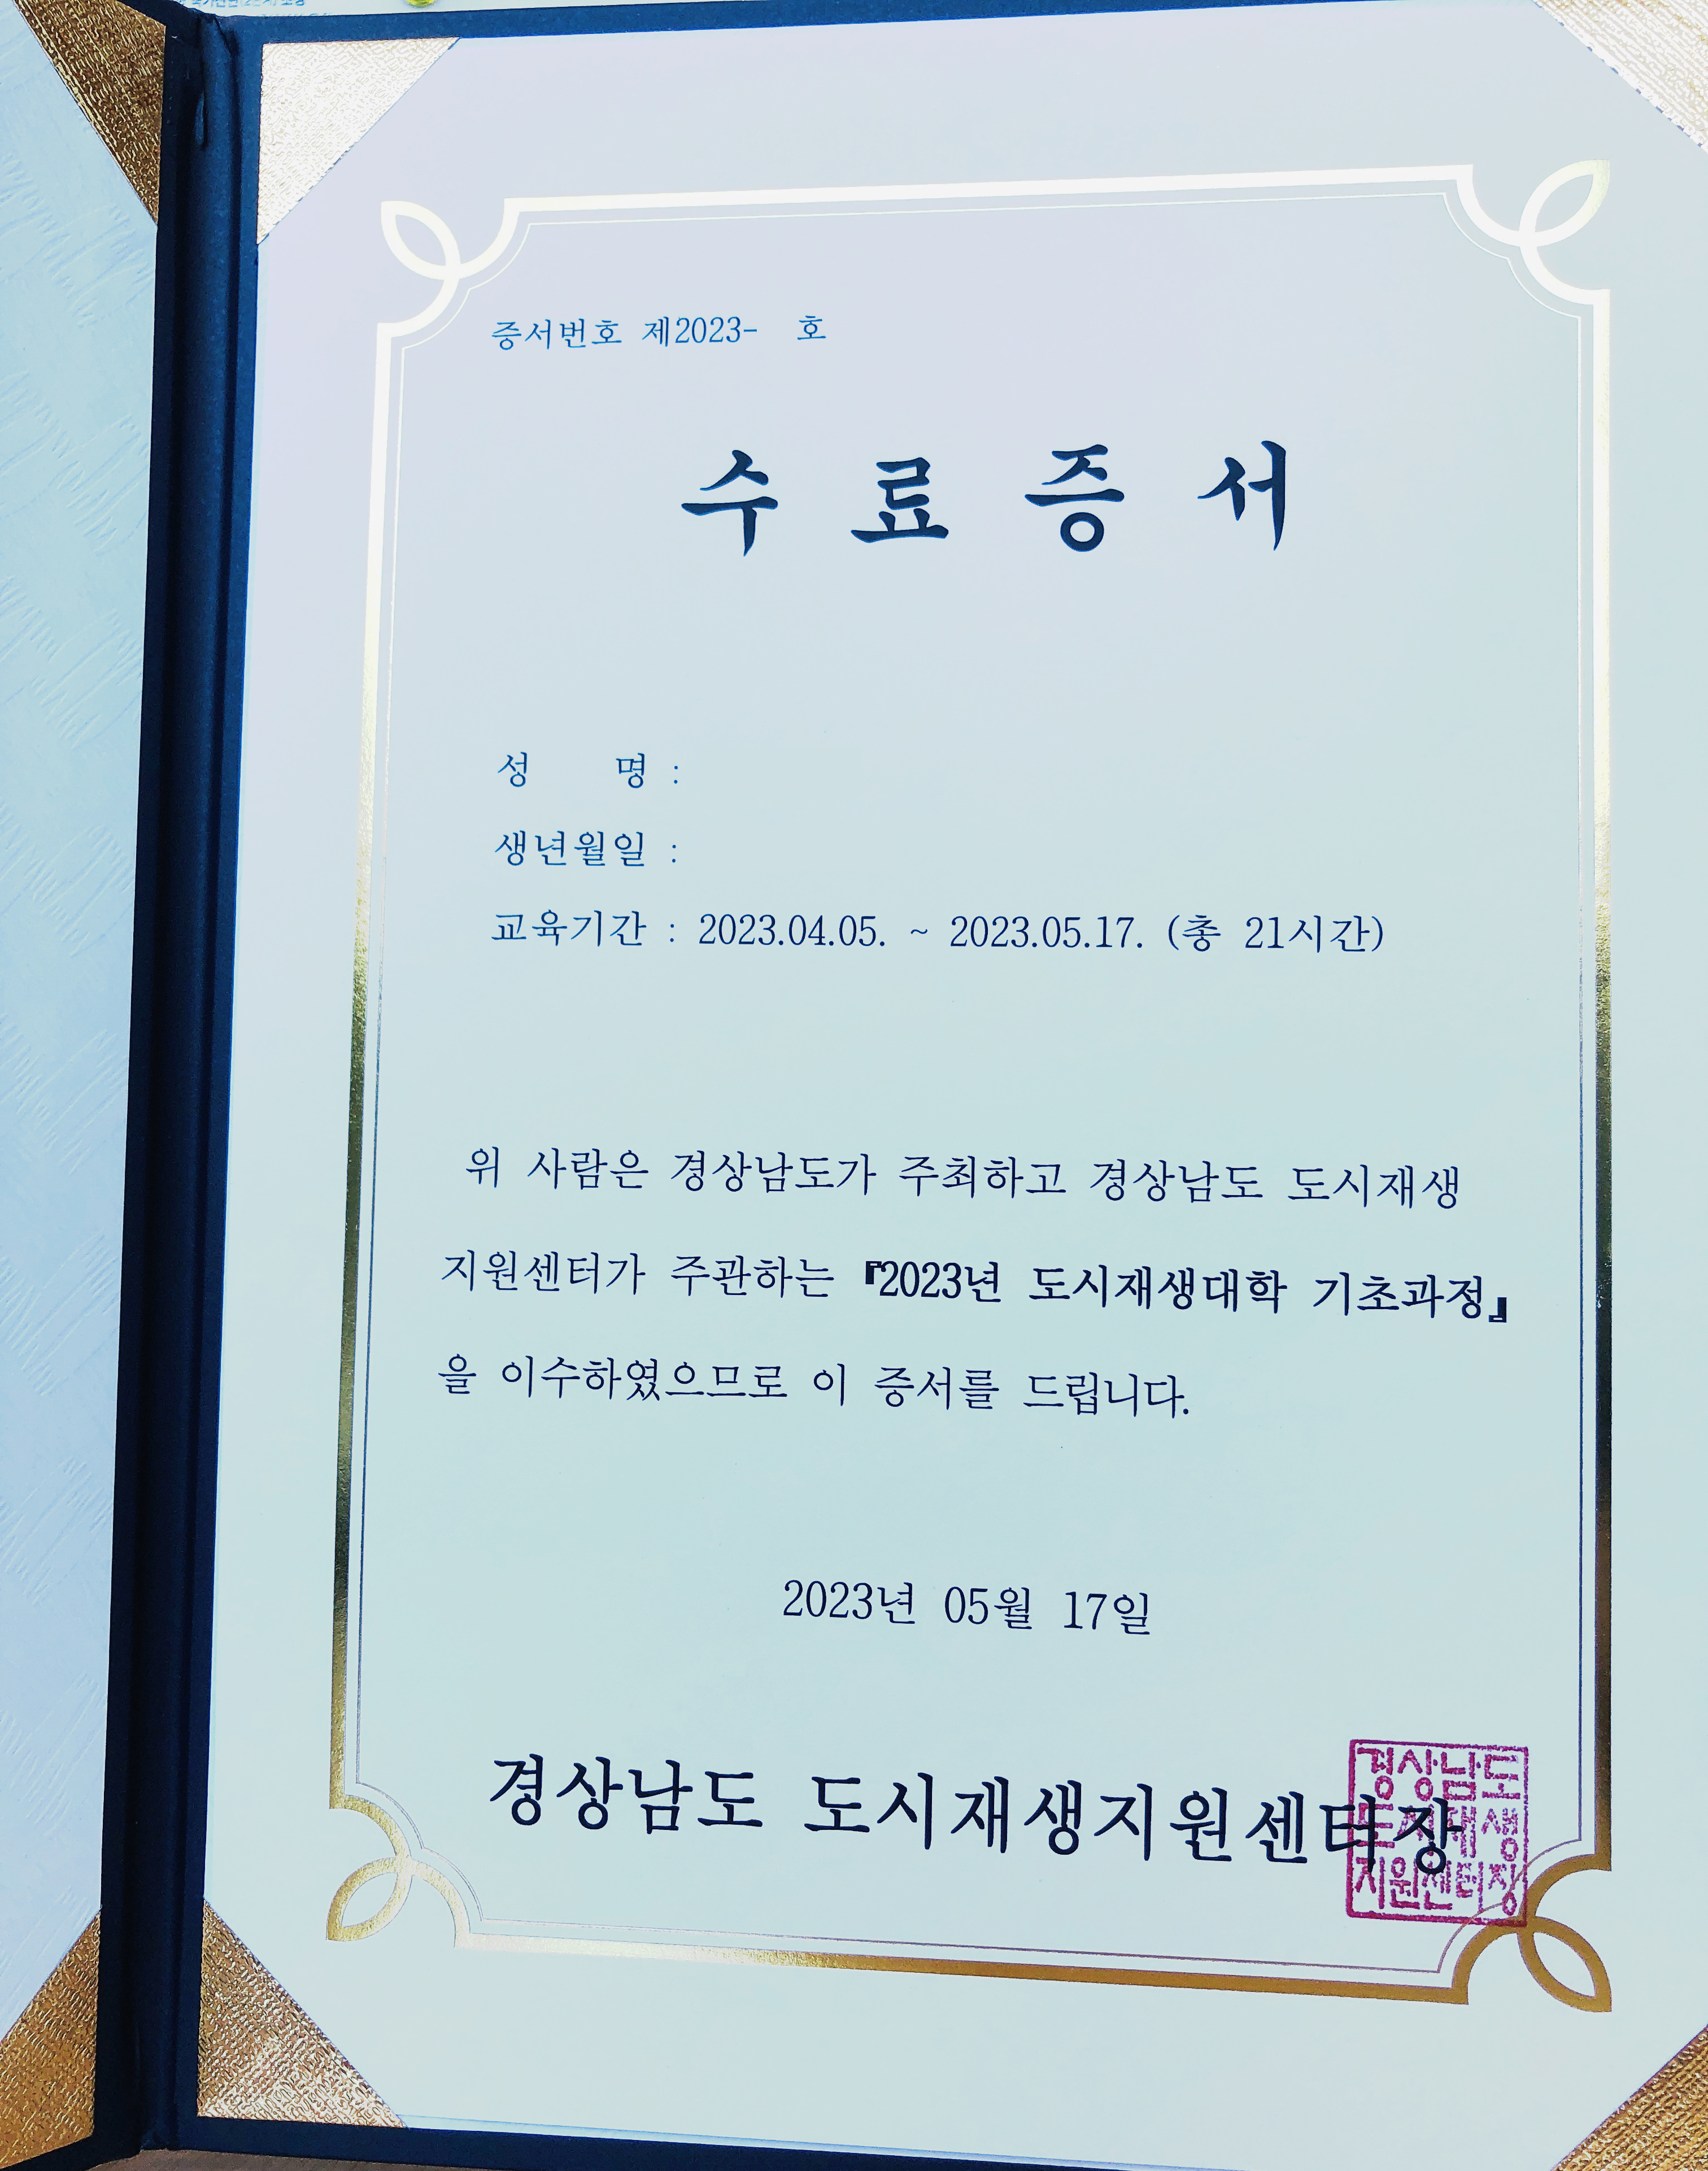 증서번호 제2023- 호
수 료 증 서
성 명 :
생년월일 :
교육기간 : 2023.04.05. ~ 2023.05.17. (총 21시간)
위 사람은 경상남도가 주최하고 경상남도 도시재생
지원센터가 주관하는 『2023년 도시재생대학 기초과정』
을 이수하였으므로 이 증서를 드립니다.
2023년 05월 17일
경상남도 도시재생지원센터장
경상남도
도시재생
지원센터장